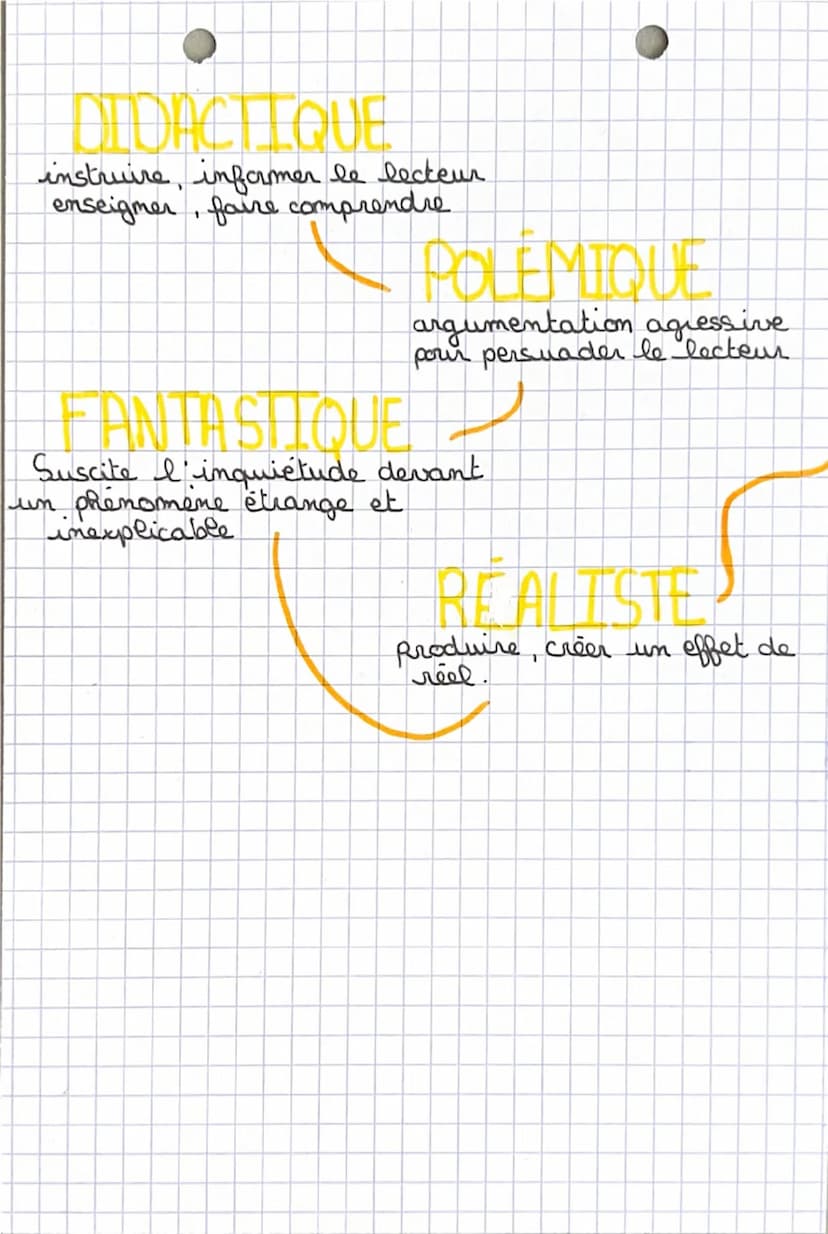 DIDACTIQUE
instruire, informer le lecteur
enseigner, faire comprendre
POLÉMIQUE
argumentation agressive
pour persuader le lecteur
FANTASTIQUE
Suscite l'inquiétude devant
un phénomène étrange et
inexplicable
RÉALISTE
Produire, créer un effet de
réel.